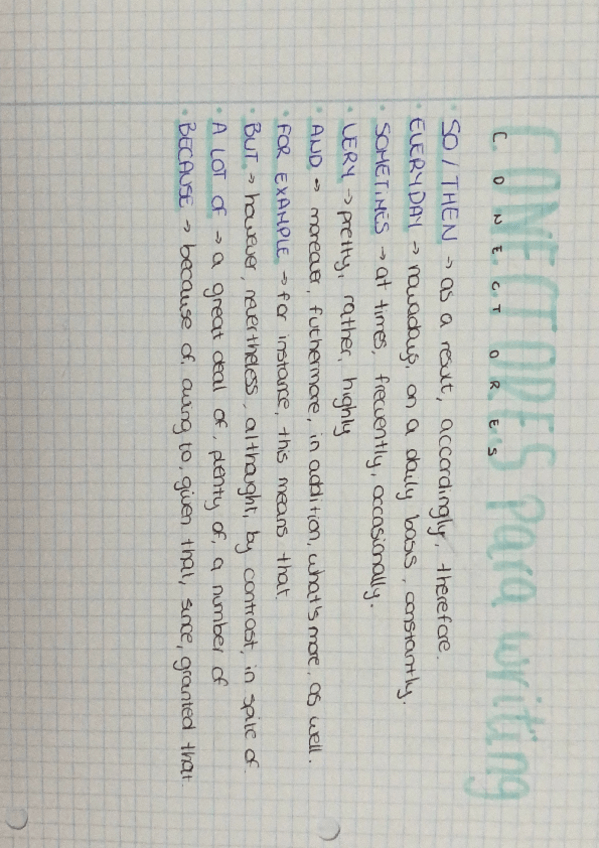 CONECTORES para writing
CONECTORES
• SO / THEN → as a result, accordingly, therefore.
• EVERYDAY → nowadays, on a daily basis, constantly.
• SOMETIMES → at times, frequently, occasionally.
• VERY → pretty, rather, highly
• AND → moreover, futhermore, in addition, what's more, as well.
• FOR EXAMPLE → for instance, this means that.
• BUT → however, nevertheless, althought, by contrast, in spite of
• A LOT OF → a great deal of, plenty of, a number of
• BECAUSE → because of, owing to, given that, since, granted that